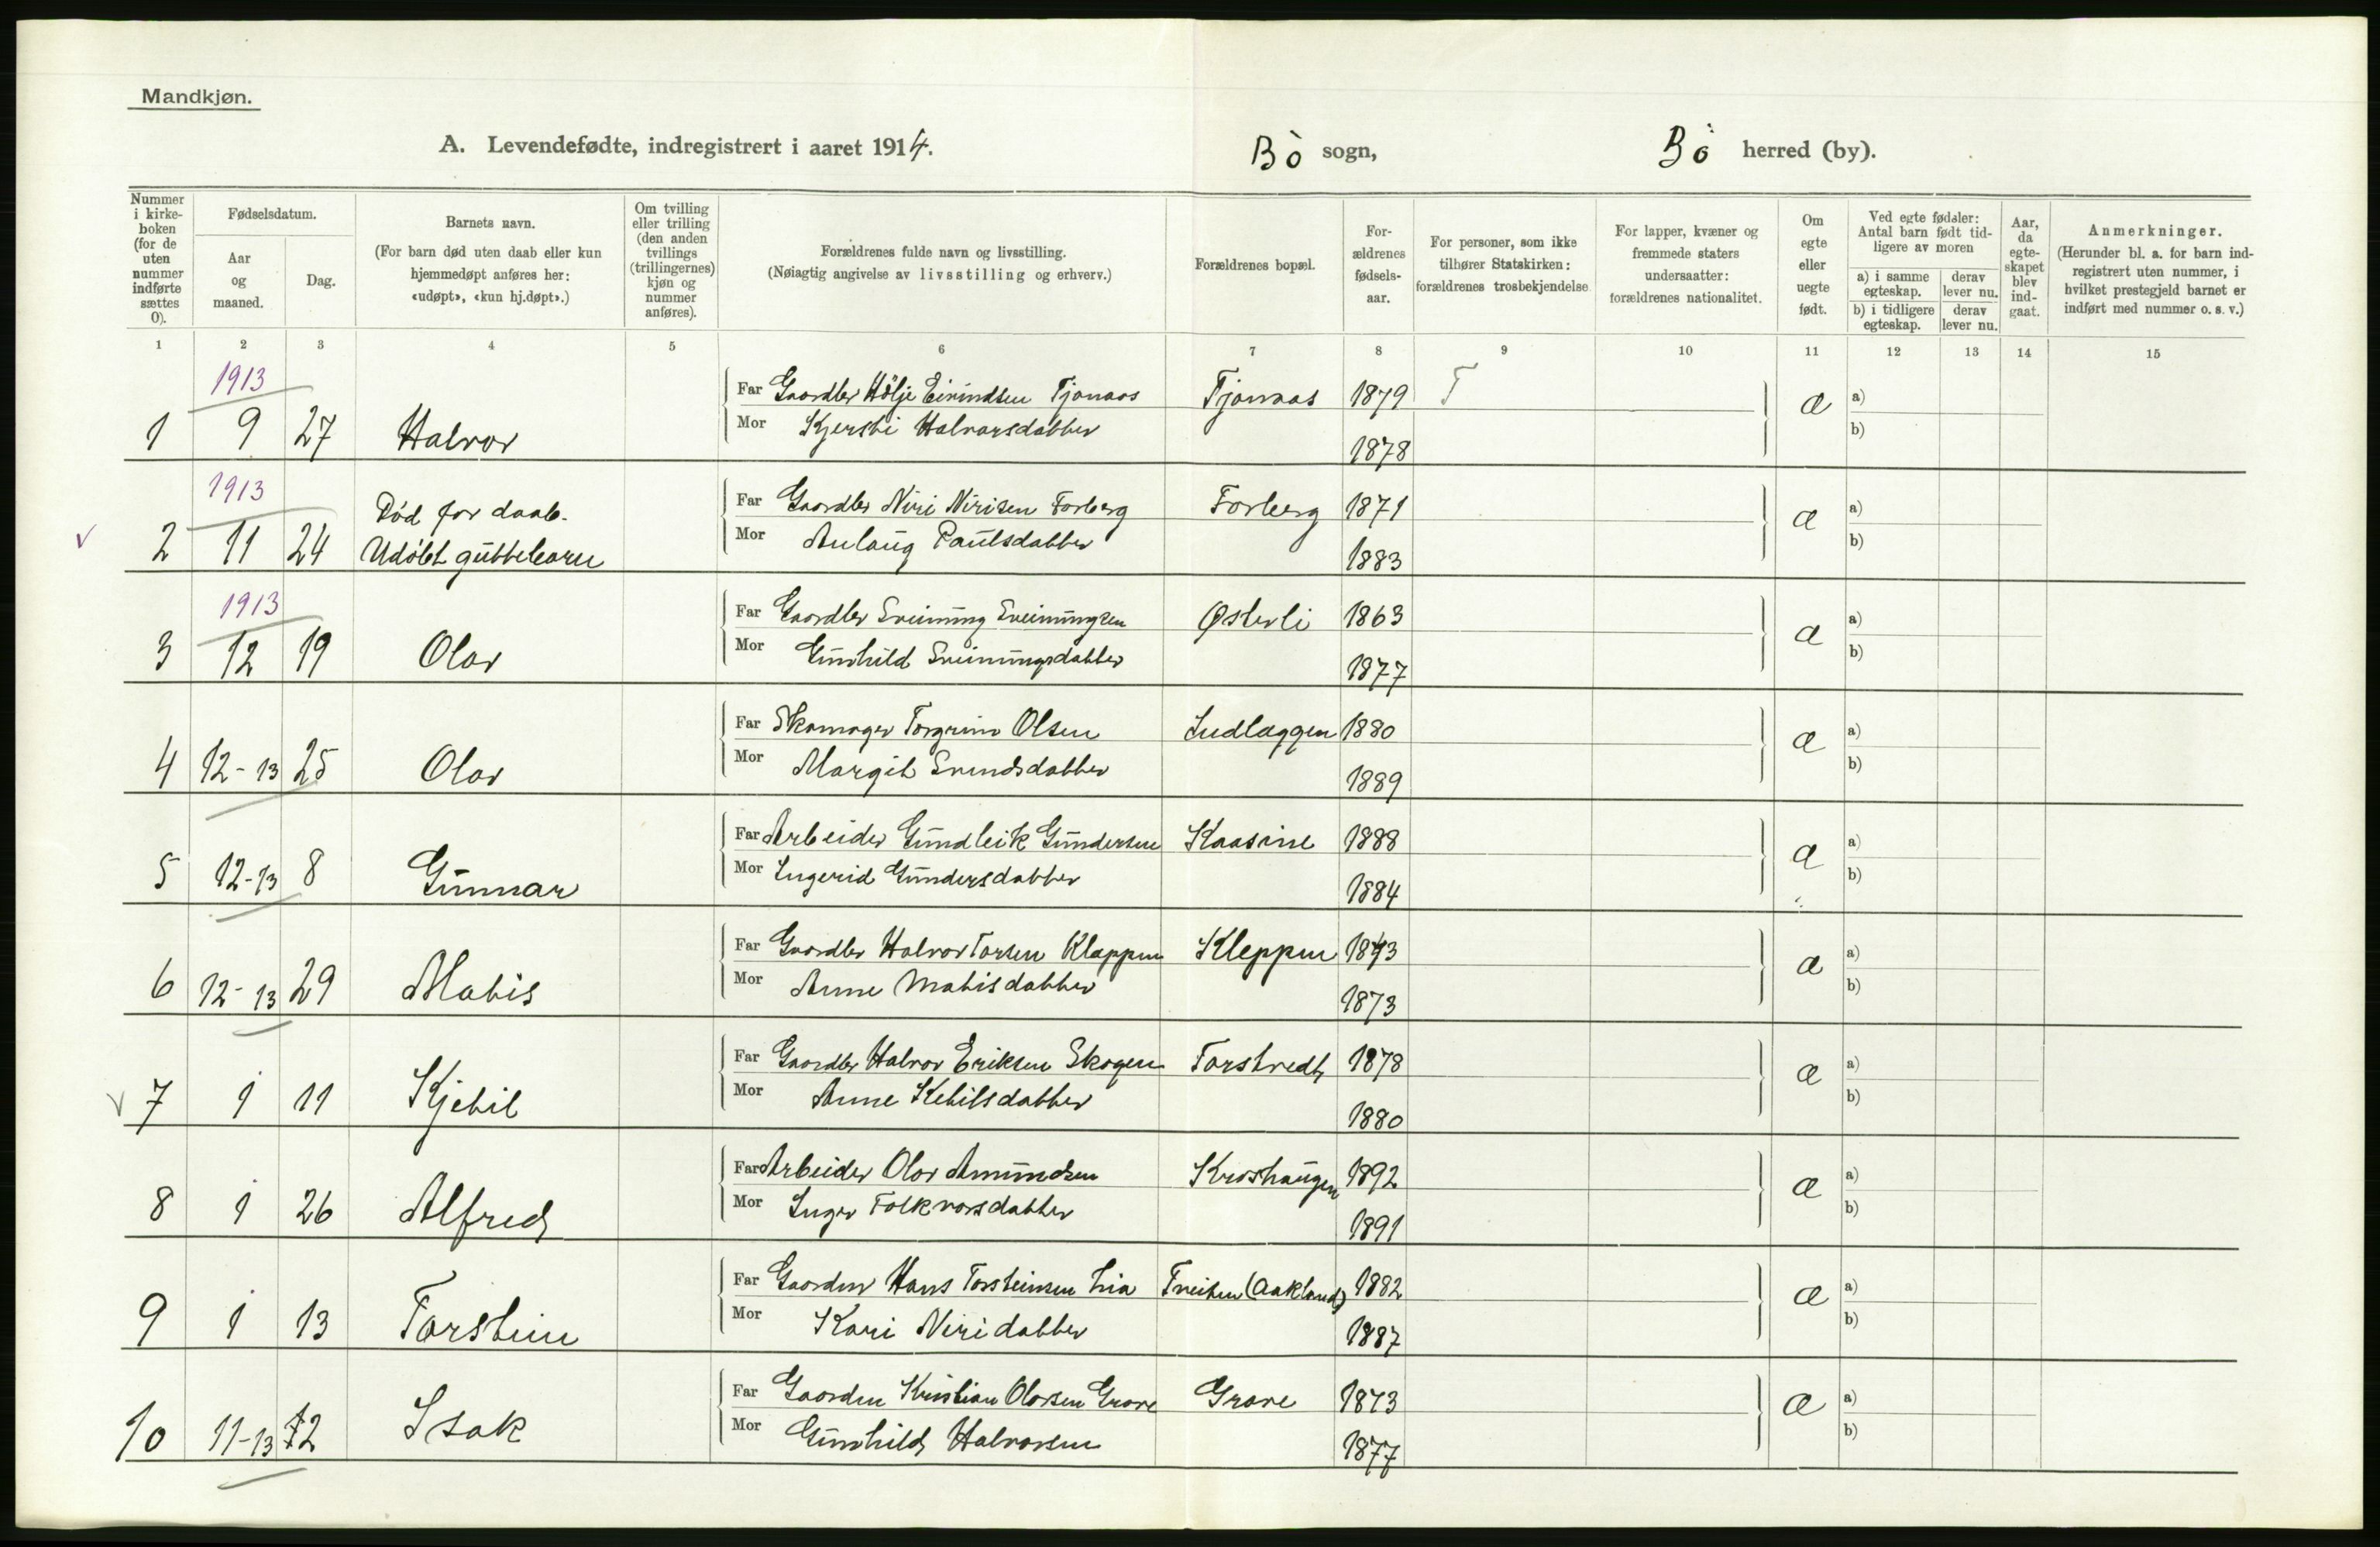 Mandkjøn.
A. Levendefødte, indregistrert i aaret 1914. Bö sogn, Bö herred (by).
Nummer i kirke- boken (for de uten nummer indførte sættes 0).
Fødselsdatum.
Aar og maaned.
Dag.
Barnets navn.
(For barn død uten daab eller kun hjemmedøpt anføres her: «udøpt», «kun hj.døpt».)
Om tvilling eller trilling (den anden tvillings (trillingernes) kjøn og nummer anføres).
Forældrenes fulde navn og livsstilling.
(Nøiagtig angivelse av livsstilling og erhverv.)
Forældrenes bopæl.
For- ældrenes fødsels- aar.
For personer, som ikke tilhører Statskirken: forældrenes trosbekjendelse
For lapper, kvæner og fremmede staters undersaatter: forældrenes nationalitet.
Om egte eller uegte født.
Ved egte fødsler: Antal barn født tid- ligere av moren
a) i samme egteskap.
derav lever nu.
b) i tidligere egteskap.
derav lever nu.
Aar, da egte- skapet blev ind- gaat.
Anmerkninger.
(Herunder bl. a. for barn ind- registrert uten nummer, i hvilket prestegjeld barnet er indført med nummer o. s. v.)
1 2 3 4 5 6 7 8 9 10 11 12 13 14 15
1913
Far Gaardbr Hölje Eivindsen Tjonaas Tjonaas 1879 T
1 9 27 Halvor Mor Kjersti Halvorsdatter 1878 æ a) b)
1913
Død før daab. Far Gaardbr Niri Nirisen Forberg Forberg 1871
v 2 11 24 Udöbt guttebarn Mor Aulaug Paulsdatter 1883 æ a) b)
1913
Far Gaardbr Sveinung Sveinungsen Østerli 1863
3 12 19 Olav Mor Gunhild Sveinungsdatter 1877 æ a) b)
Far Skomager Torgrim Olsen Indlæggen 1880
4 12-13 25 Olav Mor Margit Svendsdatter 1889 æ a) b)
Far Arbeider Gundleik Gundersen Kaasine 1888
5 12-13 8 Gunnar Mor Ingerid Gundersdatter 1884 æ a) b)
Far Gaardbr Halvor Torsen Kleppen Kleppen 1873
6 12-13 29 Matis Mor Anne Matisdatter 1873 æ a) b)
Far Gaardbr Halvor Eriksen Skogen Torstvedt 1878
v 7 1 11 Kjetil Mor Anne Ketilsdatter 1880 æ a) b)
Far Arbeider Olav Amundsen Kroshaugen 1892
8 1 26 Alfred Mor Inger Folkvorsdatter 1891 æ a) b)
Far Gaarden Hans Torsteinsen Lia Treiten (Aakland) 1882
9 1 13 Torstein Mor Kari Niridatter 1887 æ a) b)
Far Gaarden Kristian Olavsen Grave Grave 1873
10 11-13 12 Isak Mor Gunhild Halvorsen 1877 æ a) b)